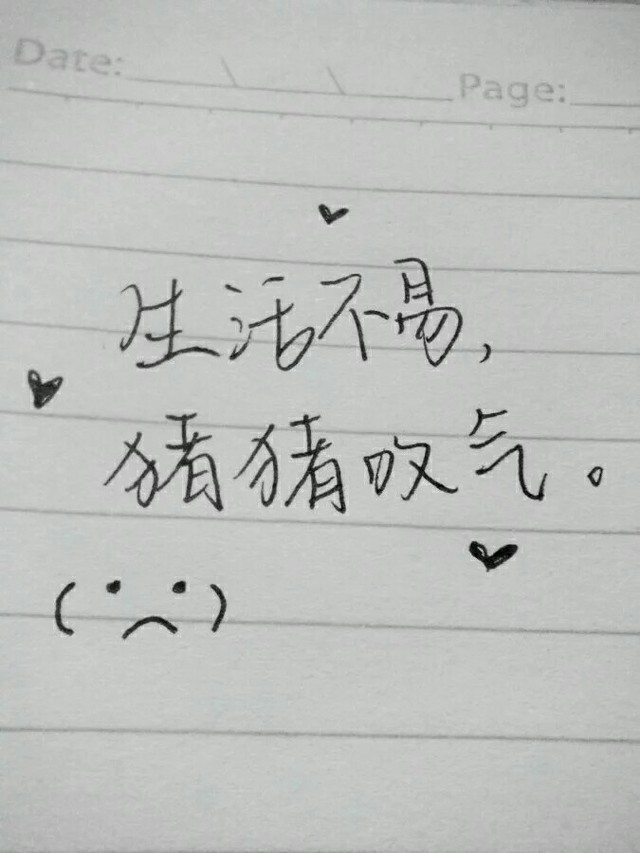 Date: Page:
生活不易,
猪猪叹气。
( · ︵ · )